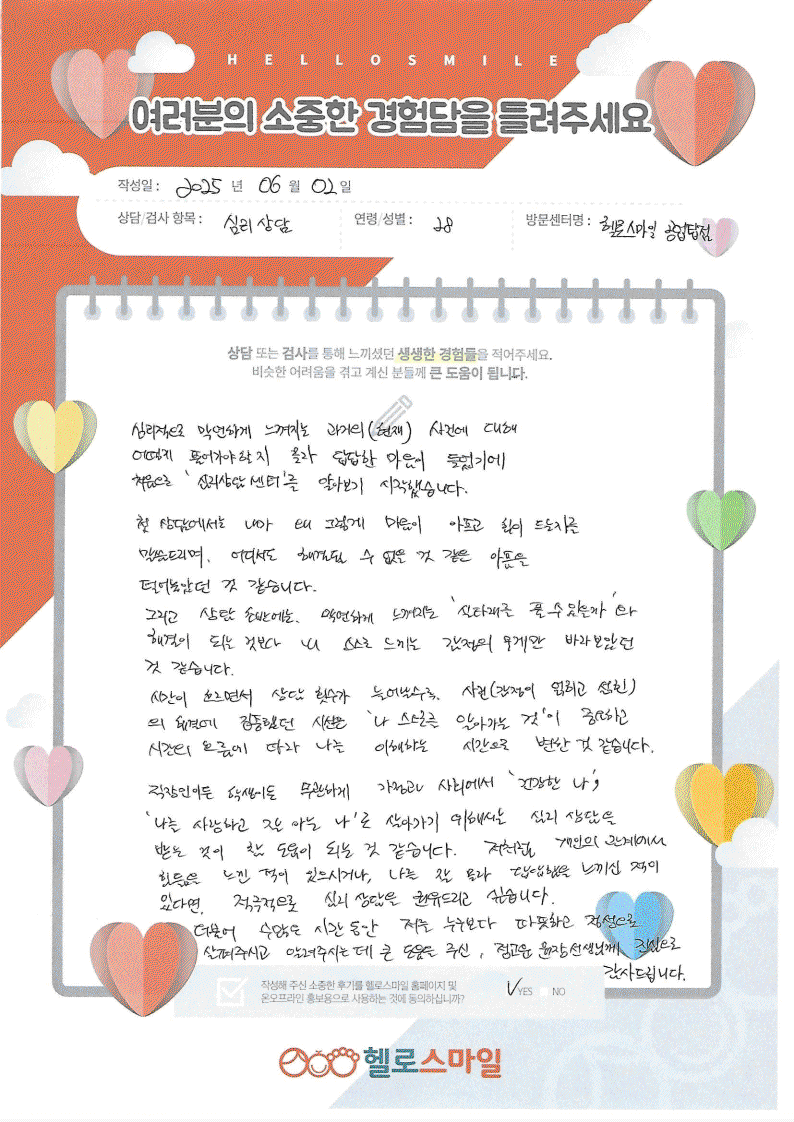 HELLOSMILE
여러분의 소중한 경험담을 들려주세요
작성일 : 2025 년 06 월 02 일
상담/검사 항목 : 심리상담 연령/성별 : 28 방문센터명 : 헬로스마일 공덕점
상담 또는 검사를 통해 느끼셨던 생생한 경험들을 적어주세요.
비슷한 어려움을 겪고 계신 분들께 큰 도움이 됩니다.
심리적으로 막연하게 느껴지는 과거의(현재) 사건에 대해
어떻게 풀어가야할지 몰라 답답한 마음이 들었기에
처음으로 '심리상담센터'를 알아보기 시작했습니다.
첫 상담에서는 내가 왜 그렇게 마음이 아프고 힘이 드는지를
말씀드리며, 어디서도 해결될 수 없을 것 같은 아픔을
털어놓았던 것 같습니다.
그리고 상담 초반에는, 막연하게 느껴지는 '실타래를 풀 수 있을까'의
해결이 되는 것보다 내 스스로 느끼는 감정의 무게만 바라보았던
것 같습니다.
시간이 흐르면서 상담 횟수가 늘어날수록, 사건(감정이 얽히고 설킨)
의 해결에 집중했던 시선은 '나 스스로를 알아가는 것'이 중요하고
시간의 흐름에 따라 나를 이해하는 시간으로 변한 것 같습니다.
직장인이든 학생이든 무관하게 가정과 사회에서 '건강한 나',
'나를 사랑하고 잘 아는 나'로 살아가기 위해서는 심리 상담을
받는 것이 참 도움이 되는 것 같습니다. 저처럼, 개인의 관계에서
힘듦을 느낀 적이 있으시거나, 나를 잘 몰라 답답함을 느끼신 적이
있다면, 적극적으로 심리 상담을 권유드리고 싶습니다.
더불어 수많은 시간 동안 저를 누구보다 따뜻하고 정성으로
살펴주시고 알려주시는 데 큰 도움을 주신, 원장선생님께 진심으로
감사드립니다.
작성해 주신 소중한 후기를 헬로스마일 홈페이지 및
온오프라인 홍보용으로 사용하는 것에 동의하십니까? YES NO
헬로스마일